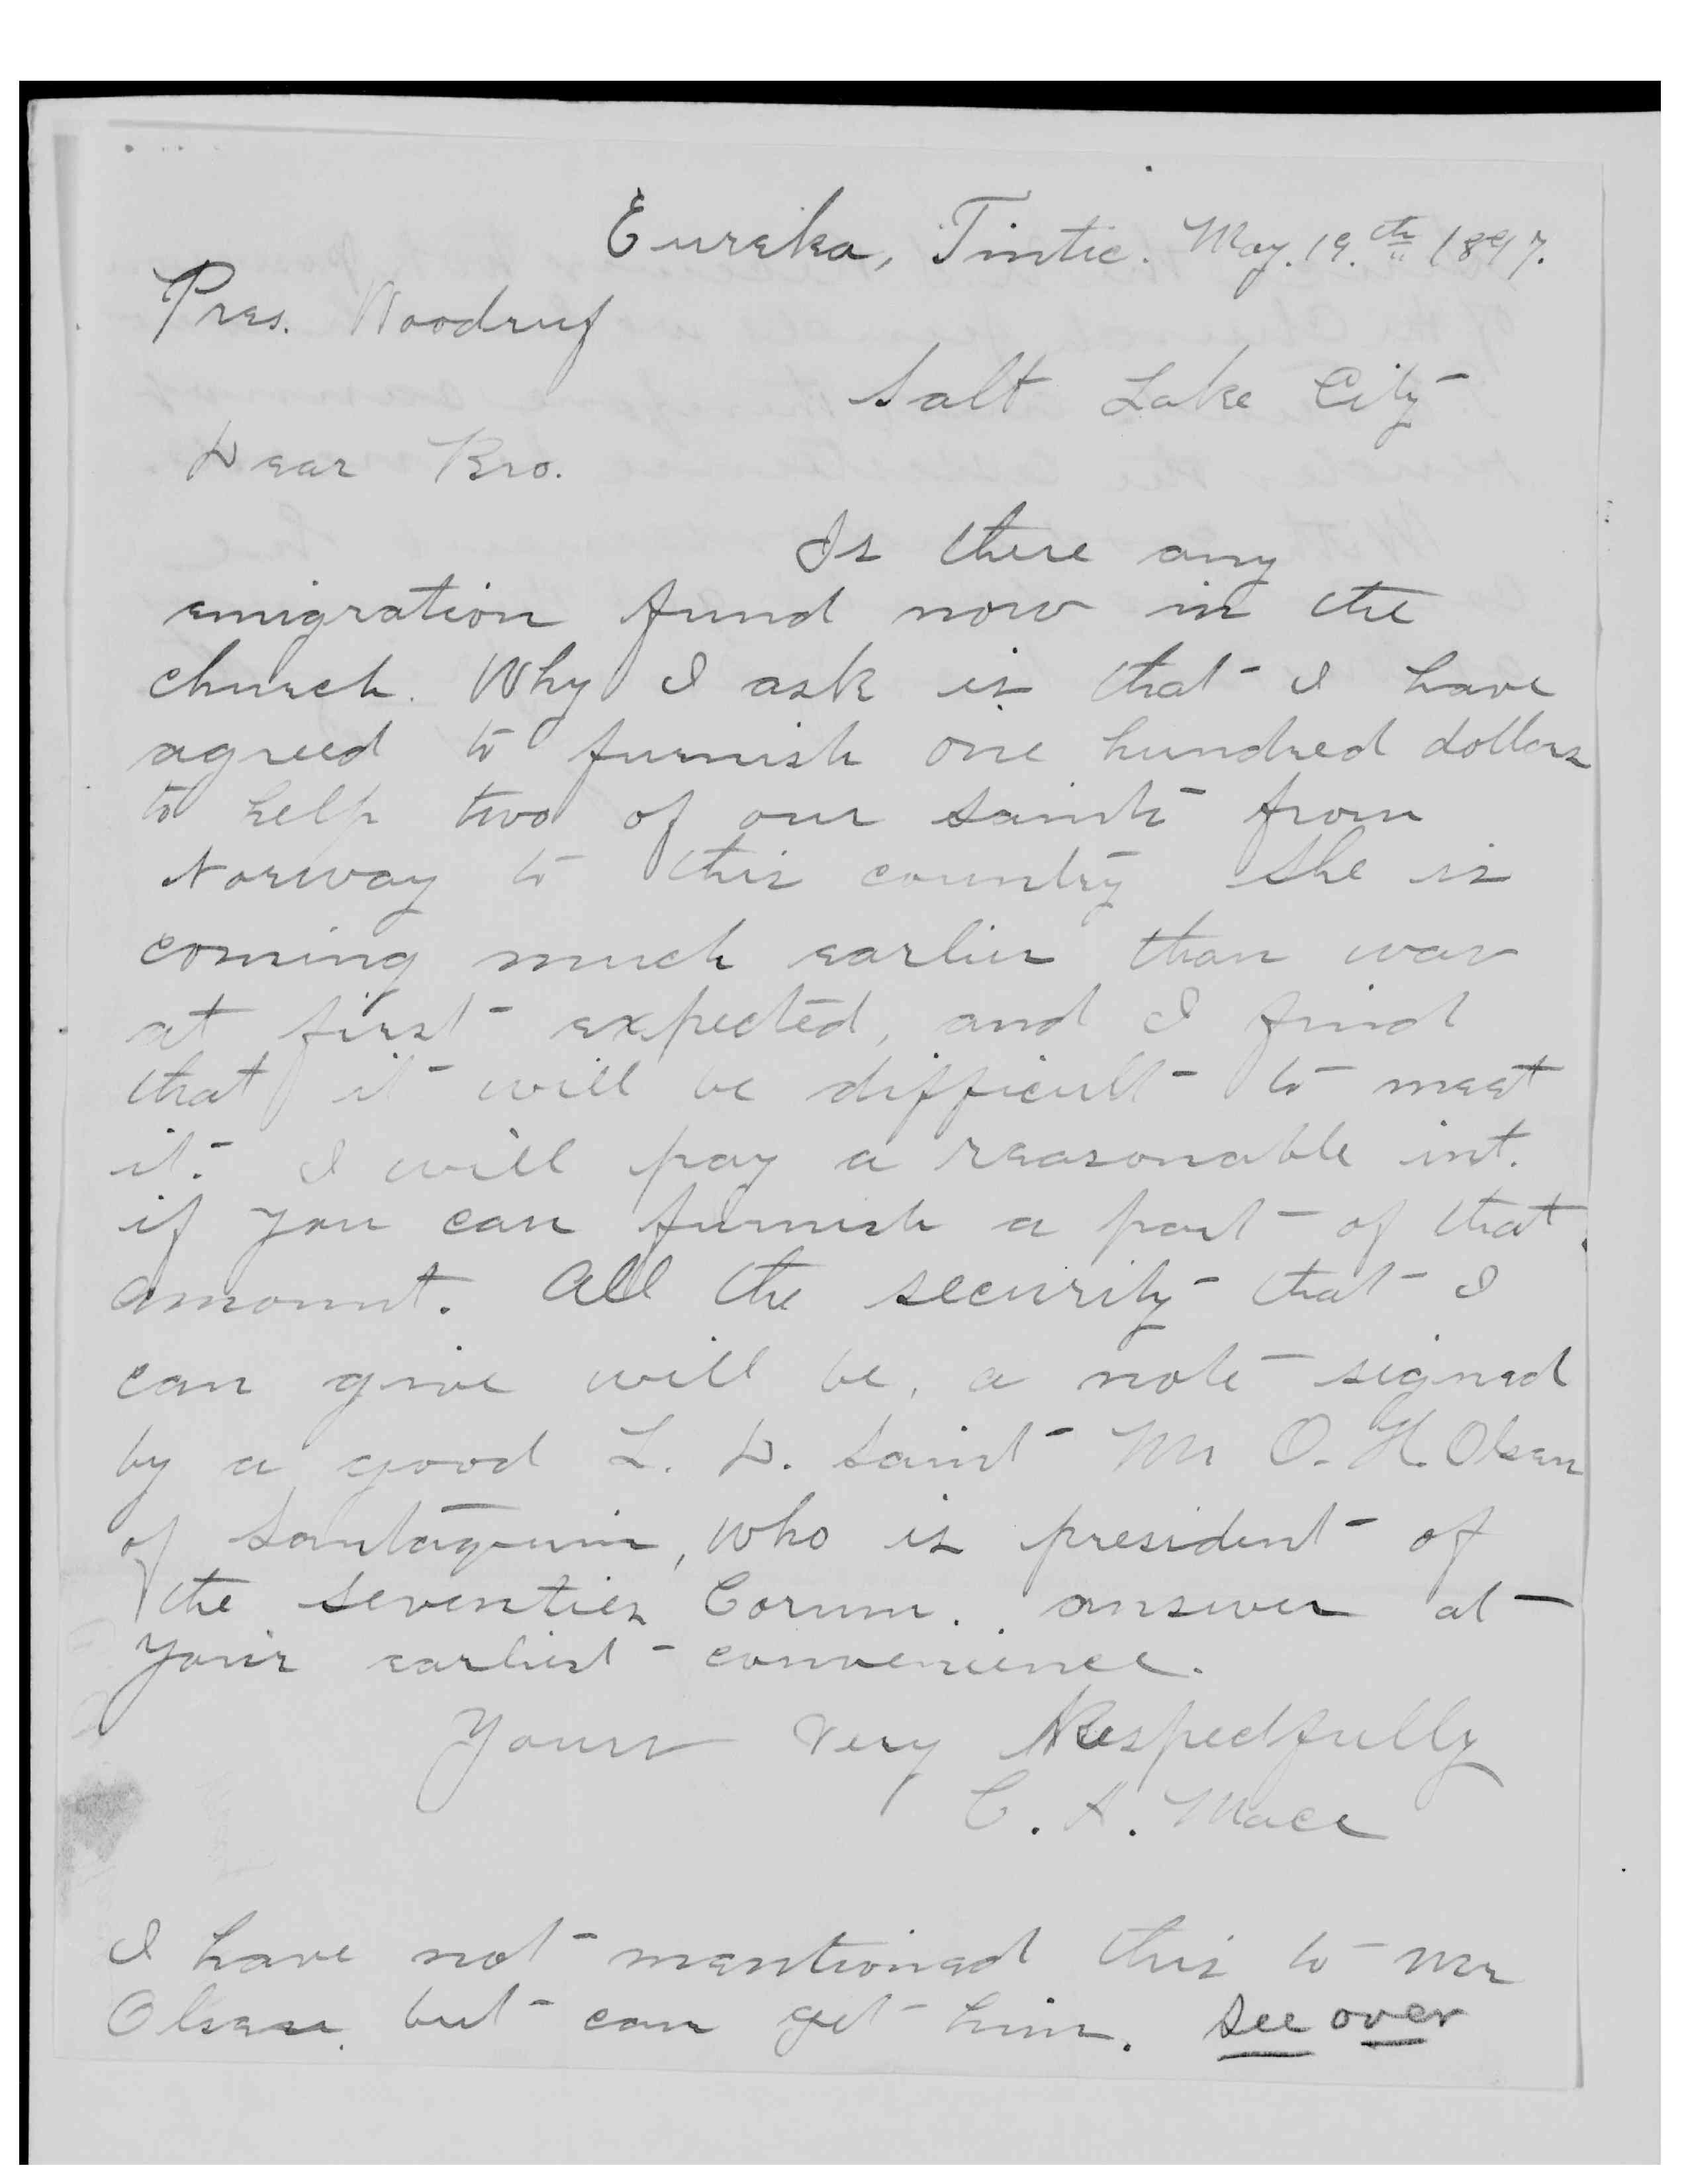 Eureka, Tintic. May. 19.th 1897.
Pres. Woodruf
Salt Lake City
Dear Bro.
Is there any
emigration fund now in the
church. Why I ask is that I have
agreed to furnish one hundred dollars
to help two of our saints from
Norway to this country She is
coming much earlier than was
at first expected, and I find
that it will be difficult to meet
it. I will pay a reasonable int.
if you can furnish a part of that
amount. All the security that I
can give will be, a note signed
by a good L. D. Saint Mr O. H. Olsen
of Santaquin, who is president of
the seventies Corum. answer at
your earliest convenience.
Yours Very Respectfully
C. A. Mace
I have not mentioned this to Mr
Olsen. but can get him. See over